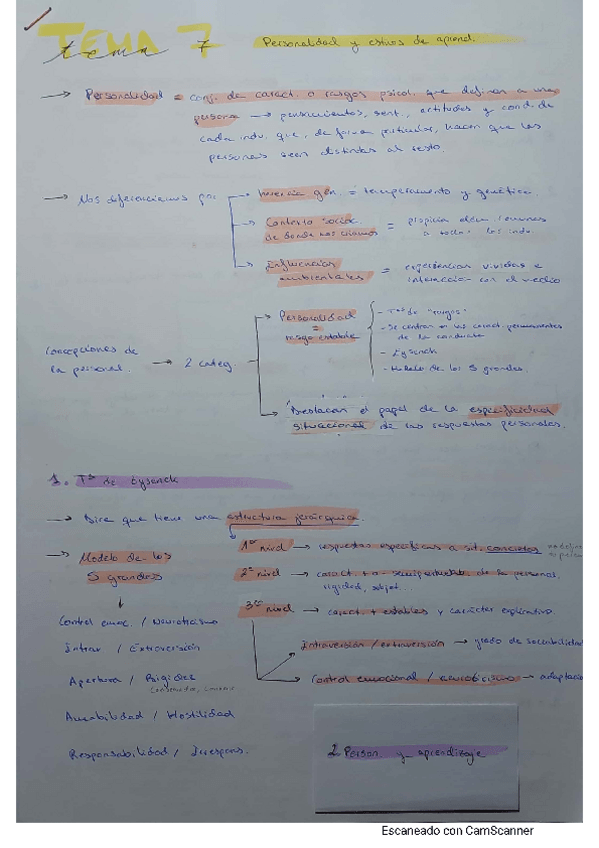 TEMA 7
tema 7
Personalidad y estilos de aprend.
→ Personalidad = conj. de caract. o rasgos psicol. que definen a una
persona → pensamientos, sent., actitudes y cond. de
cada indv. que, de forma particular, hacen que las
personas sean distintas al resto.
→ Nos diferenciamos por
Herencia gen. = temperamento y genética.
Contexto social
de donde nos criamos = propicia elem. comunes
a todos los indv.
Influencias
ambientales = experiencias vividas e
interacción con el medio
Concepciones de
la personal. → 2 categ.
Personalidad
=
rasgo estable
- Tªs de "rasgos"
- Se centran en las caract. permanentes
de la conducta
- Eysenck
- Modelo de los 5 grandes.
Destacan el papel de la especificidad
situacional de las respuestas personales.
1. Tª de Eysenck
→ Dice que tiene una estructura jerárquica.
1er nivel → respuestas específicas a sit. concretas
2º nivel → caract. + o - de la personal.
rigidez, subjet...
3er nivel → caract. + estables y carácter explicativo.
Introversión / extraversión → grado de sociabilidad
Control emocional / neuroticismo → adaptació
→ Modelo de los
5 grandes
Control emoc. / Neuroticismo
Introv / Extraversión
Apertura / Rigidez
Amabilidad / Hostilidad
Responsabilidad / Irrespons.
2 Person. y aprendizaje
Escaneado con CamScanner